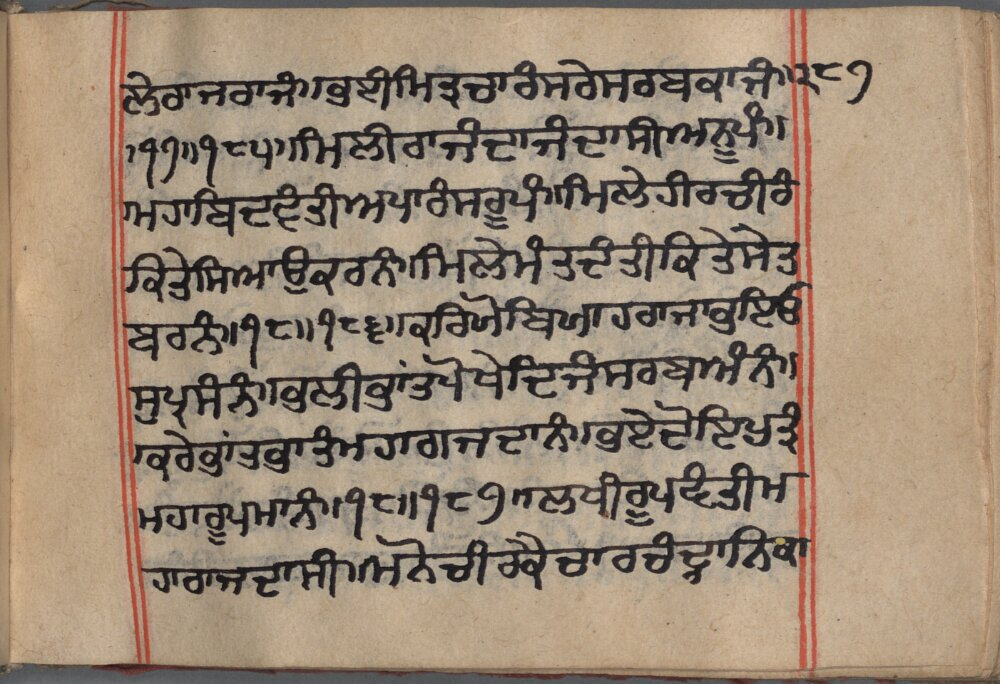 ਲੇਰਾਜਰਾਜੰ॥ਭੁਈਮਿਤ੍ਰਚਾਰੰਸਰੇਸਰਬਕਾਜੰ॥੨੮੭
॥੧੭॥੧੮੫॥ਮਿਲੀਰਾਜੰਦਾਜੰਦਾਸੀਅਨੂਪੰ॥
ਮਹਾਬਿਦਵੰਤੀਅਪਾਰੰਸਰੂਪੰ॥ਮਿਲੇਹੀਰਚੀਰੰ
ਕਿਤੇਸਿਆਉਕਰਨੰ॥ਮਿਲੇਮੰਤਦੰਤੀਕਿਤੇਸੇਤ
ਬਰਨੰ॥੧੮॥੧੮੬॥ਕਰਿਯੋਬਿਯਾਹਰਾਜਾਭੁਇਓ
ਸੁਪ੍ਰਸੰਨੰ॥ਭਲੀਭਾਂਤਪੋਖੇਦਿਜੰਸਰਬਅੰਨੰ॥
ਕਰੇਭਾਂਤਭਾਤੰਮਹਾਗਜਦਾਨੰ॥ਭੁਏਦੋਇਪੁਤ੍ਰੰ
ਮਹਾਰੂਪਮਾਨੰ॥੧੮॥੧੮੭॥ਲਖੀਰੂਪਵੰਤੀਮ
ਹਾਰਾਜਦਾਸੀ॥ਮਨੋਚੀਰਕੈਚਾਰਚੰਦ੍ਰਾਨਿਕਾ